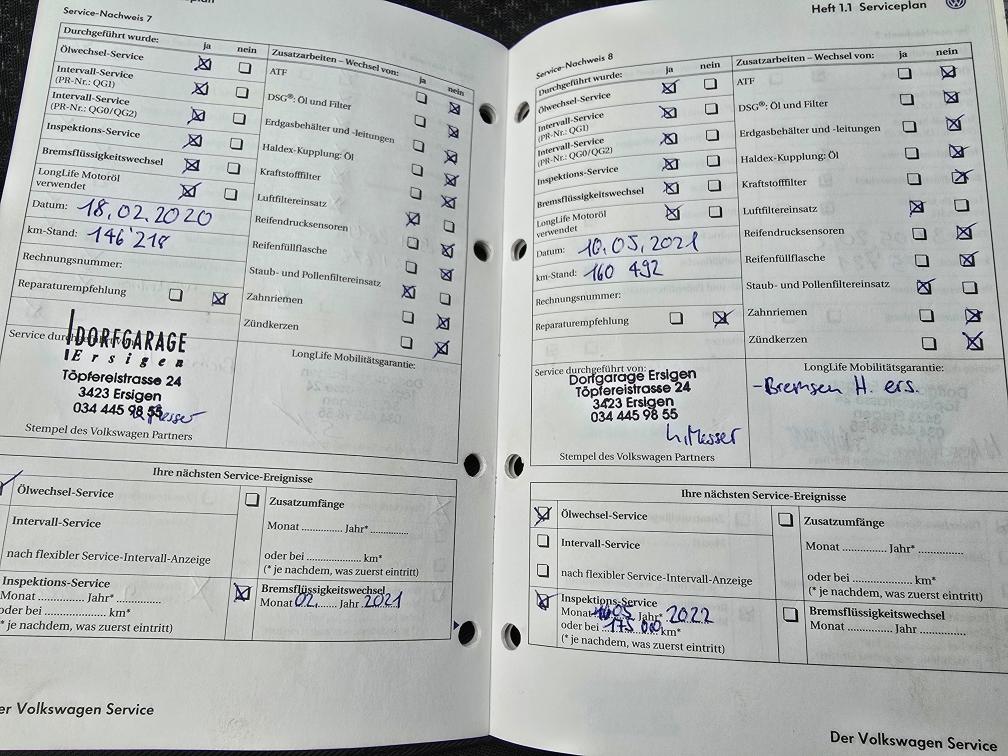 Serviceplan
Service-Nachweis 7
Durchgeführt wurde: ja nein
Ölwechsel-Service
Intervall-Service
(PR-Nr.: QG1)
Intervall-Service
(PR-Nr.: QG0/QG2)
Inspektions-Service
Bremsflüssigkeitswechsel
LongLife Motoröl
verwendet
Datum: 18.02.2020
km-Stand: 146'218
Rechnungsnummer:
Reparaturempfehlung
Zusatzarbeiten – Wechsel von: ja nein
ATF
DSG®: Öl und Filter
Erdgasbehälter und -leitungen
Haldex-Kupplung: Öl
Kraftstofffilter
Luftfiltereinsatz
Reifendrucksensoren
Reifenfüllflasche
Staub- und Pollenfiltereinsatz
Zahnriemen
Zündkerzen
Service durchgeführt von:
DORFGARAGE
Ersigen
Töpfereistrasse 24
3423 Ersigen
034 445 98 55
Messer
Stempel des Volkswagen Partners
LongLife Mobilitätsgarantie:
Ihre nächsten Service-Ereignisse
Ölwechsel-Service
Intervall-Service
nach flexibler Service-Intervall-Anzeige
Inspektions-Service
Monat .............. Jahr* ..............
oder bei .............. km*
(* je nachdem, was zuerst eintritt)
Zusatzumfänge
Monat .............. Jahr* ..............
oder bei .............. km*
(* je nachdem, was zuerst eintritt)
Bremsflüssigkeitswechsel
Monat 02. Jahr 2021
er Volkswagen Service
Heft 1.1 Serviceplan
Service-Nachweis 8
Durchgeführt wurde: ja nein
Ölwechsel-Service
Intervall-Service
(PR-Nr.: QG1)
Intervall-Service
(PR-Nr.: QG0/QG2)
Inspektions-Service
Bremsflüssigkeitswechsel
LongLife Motoröl
verwendet
Datum: 10.05.2021
km-Stand: 160 492
Rechnungsnummer:
Reparaturempfehlung
Zusatzarbeiten – Wechsel von: ja nein
ATF
DSG®: Öl und Filter
Erdgasbehälter und -leitungen
Haldex-Kupplung: Öl
Kraftstofffilter
Luftfiltereinsatz
Reifendrucksensoren
Reifenfüllflasche
Staub- und Pollenfiltereinsatz
Zahnriemen
Zündkerzen
Service durchgeführt von:
Dorfgarage Ersigen
Töpfereistrasse 24
3423 Ersigen
034 445 98 55
Messer
Stempel des Volkswagen Partners
LongLife Mobilitätsgarantie:
-Bremsen H. ers.
Ihre nächsten Service-Ereignisse
Ölwechsel-Service
Intervall-Service
nach flexibler Service-Intervall-Anzeige
Inspektions-Service
Monat 05 Jahr* 2022
oder bei 175 000 km*
(* je nachdem, was zuerst eintritt)
Zusatzumfänge
Monat .............. Jahr* ..............
oder bei .............. km*
(* je nachdem, was zuerst eintritt)
Bremsflüssigkeitswechsel
Monat .............. Jahr ..............
Der Volkswagen Service